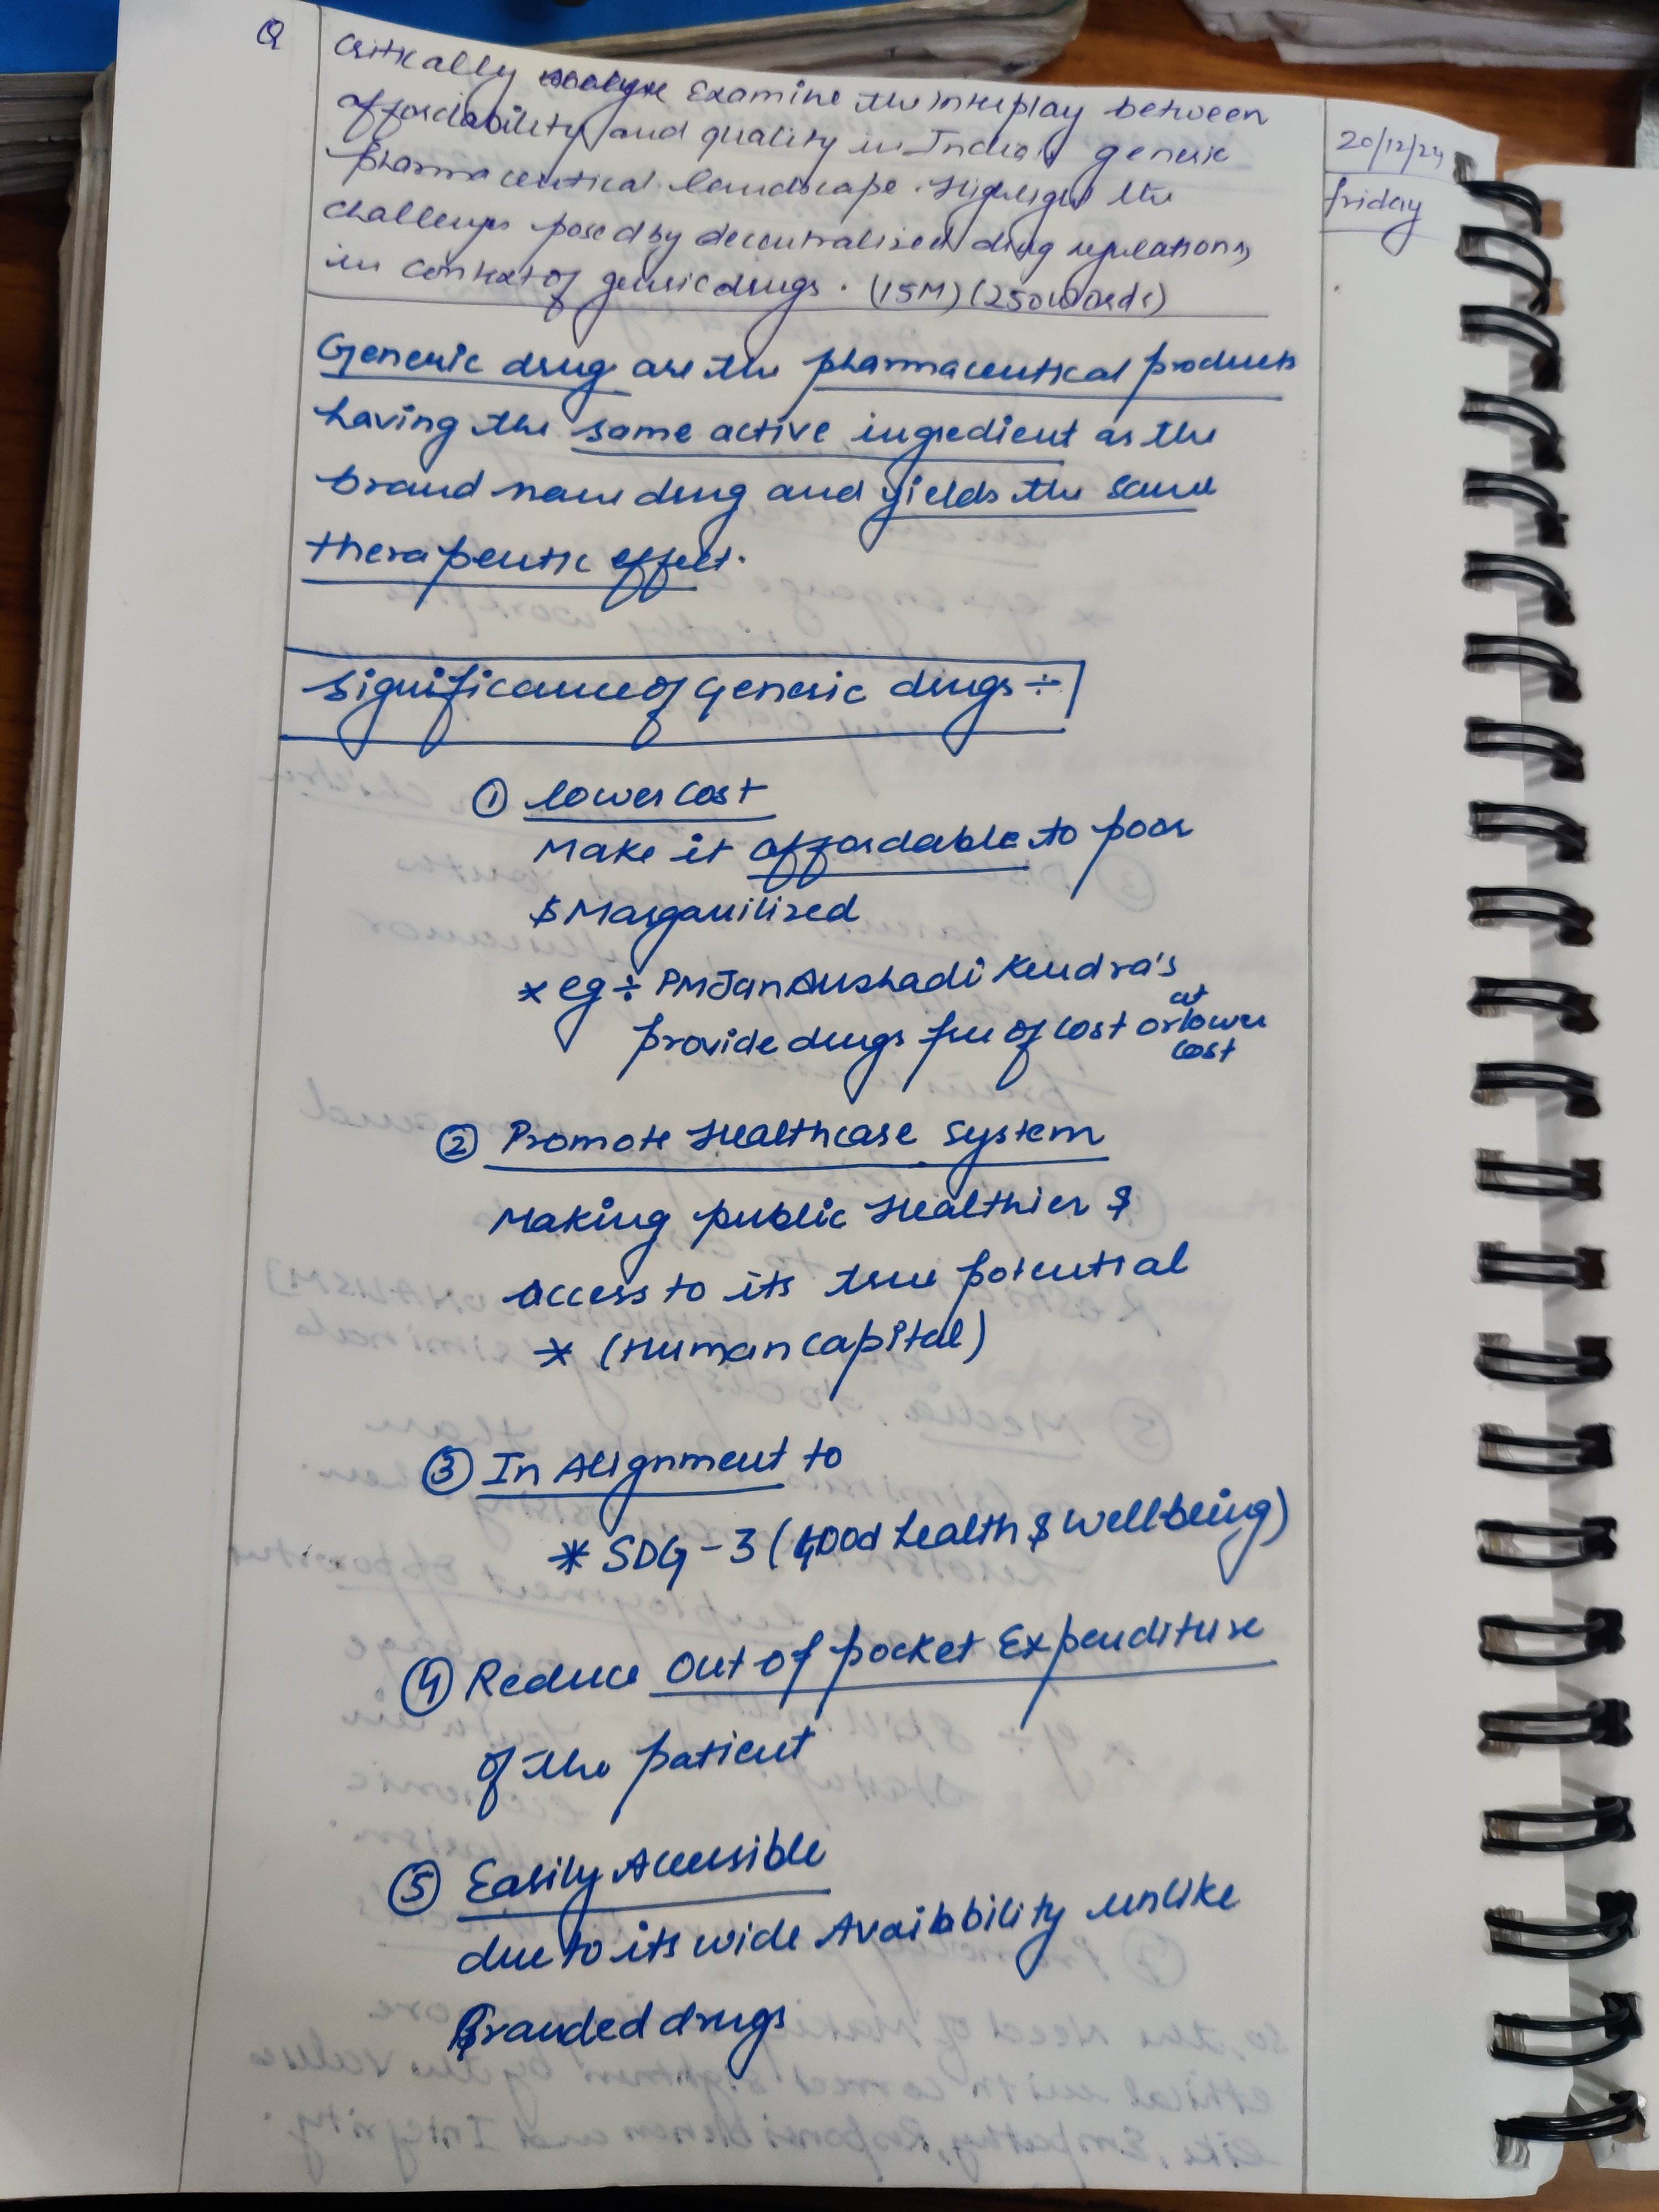 Q
Critically Examine the interplay between
affordability and quality in India's generic
pharmaceutical landscape. Highlight the
challenges posed by decentralised drug regulations
in context of generic drugs. (15M) (250 words)
20/12/24
friday
Generic drug are the pharmaceutical products
having the same active ingredient as the
brand name drug and yields the same
therapeutic effect.
Significance of Generic drugs ÷
① lower cost
Make it affordable to poor
& Marganilized
* eg ÷ PM Jan Aushadi Kendra's
provide drugs free of cost or at lower
cost
② Promote Healthcare System
Making public Healthier &
access to its true potential
* (Human Capital)
③ In Alignment to
* SDG-3 (Good health & Well-being)
④ Reduce Out of pocket Expenditure
of the patient
⑤ Easily Accessible
due to its wide Availability unlike
Branded drugs